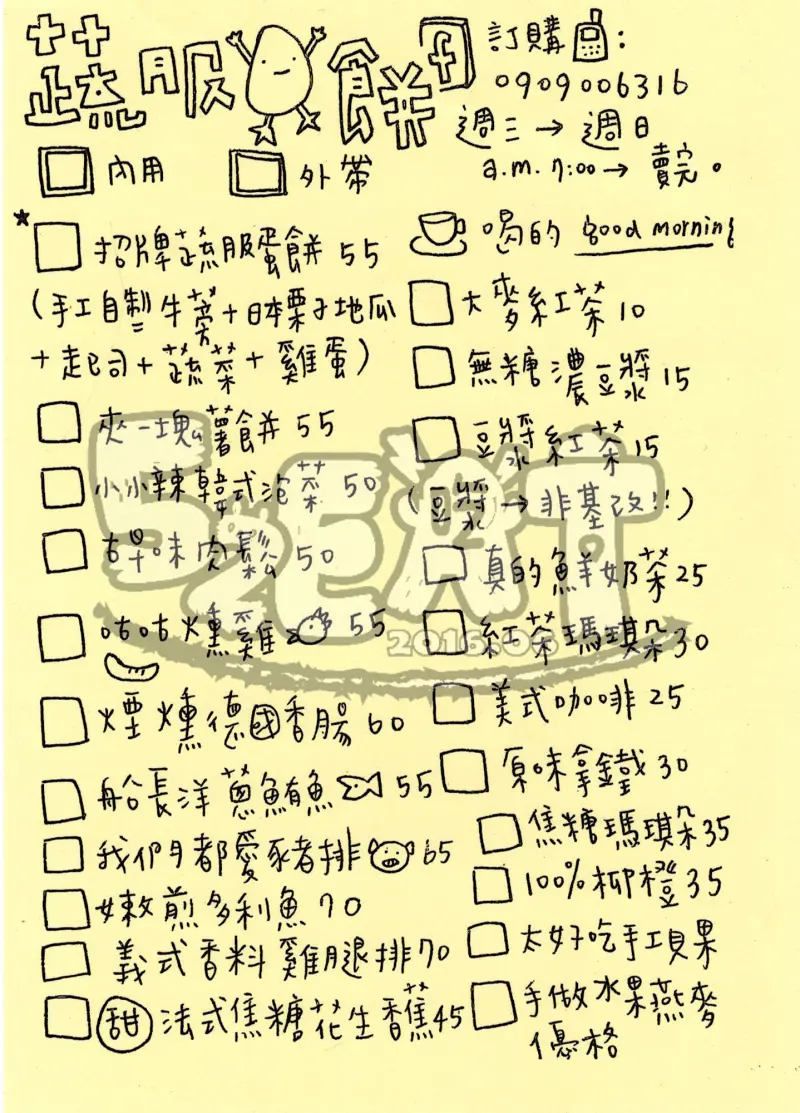 蔬服蛋餅
訂購：
0909006316
週三→週日
a.m. 7:00→賣完。
內用
外帶
招牌蔬服蛋餅 55
(手工自製牛蒡+日本栗子地瓜
+起司+蔬菜+雞蛋)
夾一塊薯餅 55
小小辣韓式泡菜 50
古早味肉鬆 50
咕咕燻雞 55
煙燻德國香腸 60
船長洋蔥鮪魚 55
我們都愛豬排 65
嫩煎多利魚 70
義式香料雞腿排 70
甜 法式焦糖花生香蕉 45
喝的 good morning
大麥紅茶 10
無糖濃豆漿 15
豆漿紅茶 15
(豆漿→非基改!!)
真的鮮奶茶 25
紅茶瑪琪朵 30
美式咖啡 25
原味拿鐵 30
焦糖瑪琪朵 35
100%柳橙 35
太好吃手工貝果
手做水果燕麥
優格
52EAT
2016.08